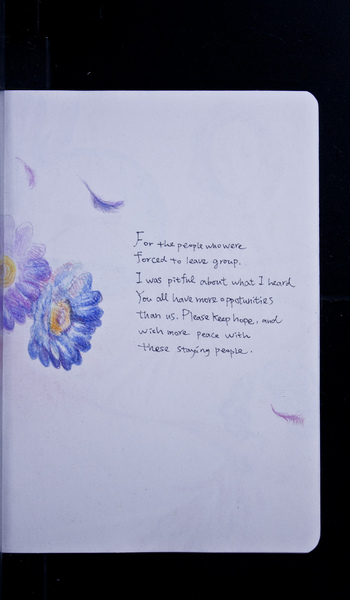 For the people who were
forced to leave group.
I was pitful about what I heard
You all have more oppotunities
than us. Please keep hope, and
wish more peace with
these staying people.